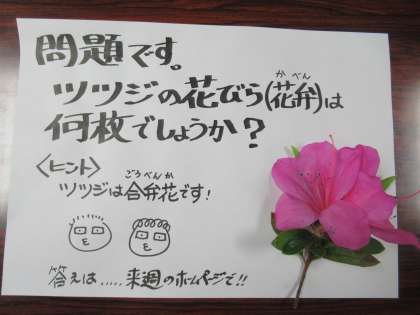 問題です。
ツツジの花びら(花弁)は
かべん
何枚でしょうか?
〈ヒント〉
ごうべんか
ツツジは合弁花です!
答えは.....来週のホームページで!!